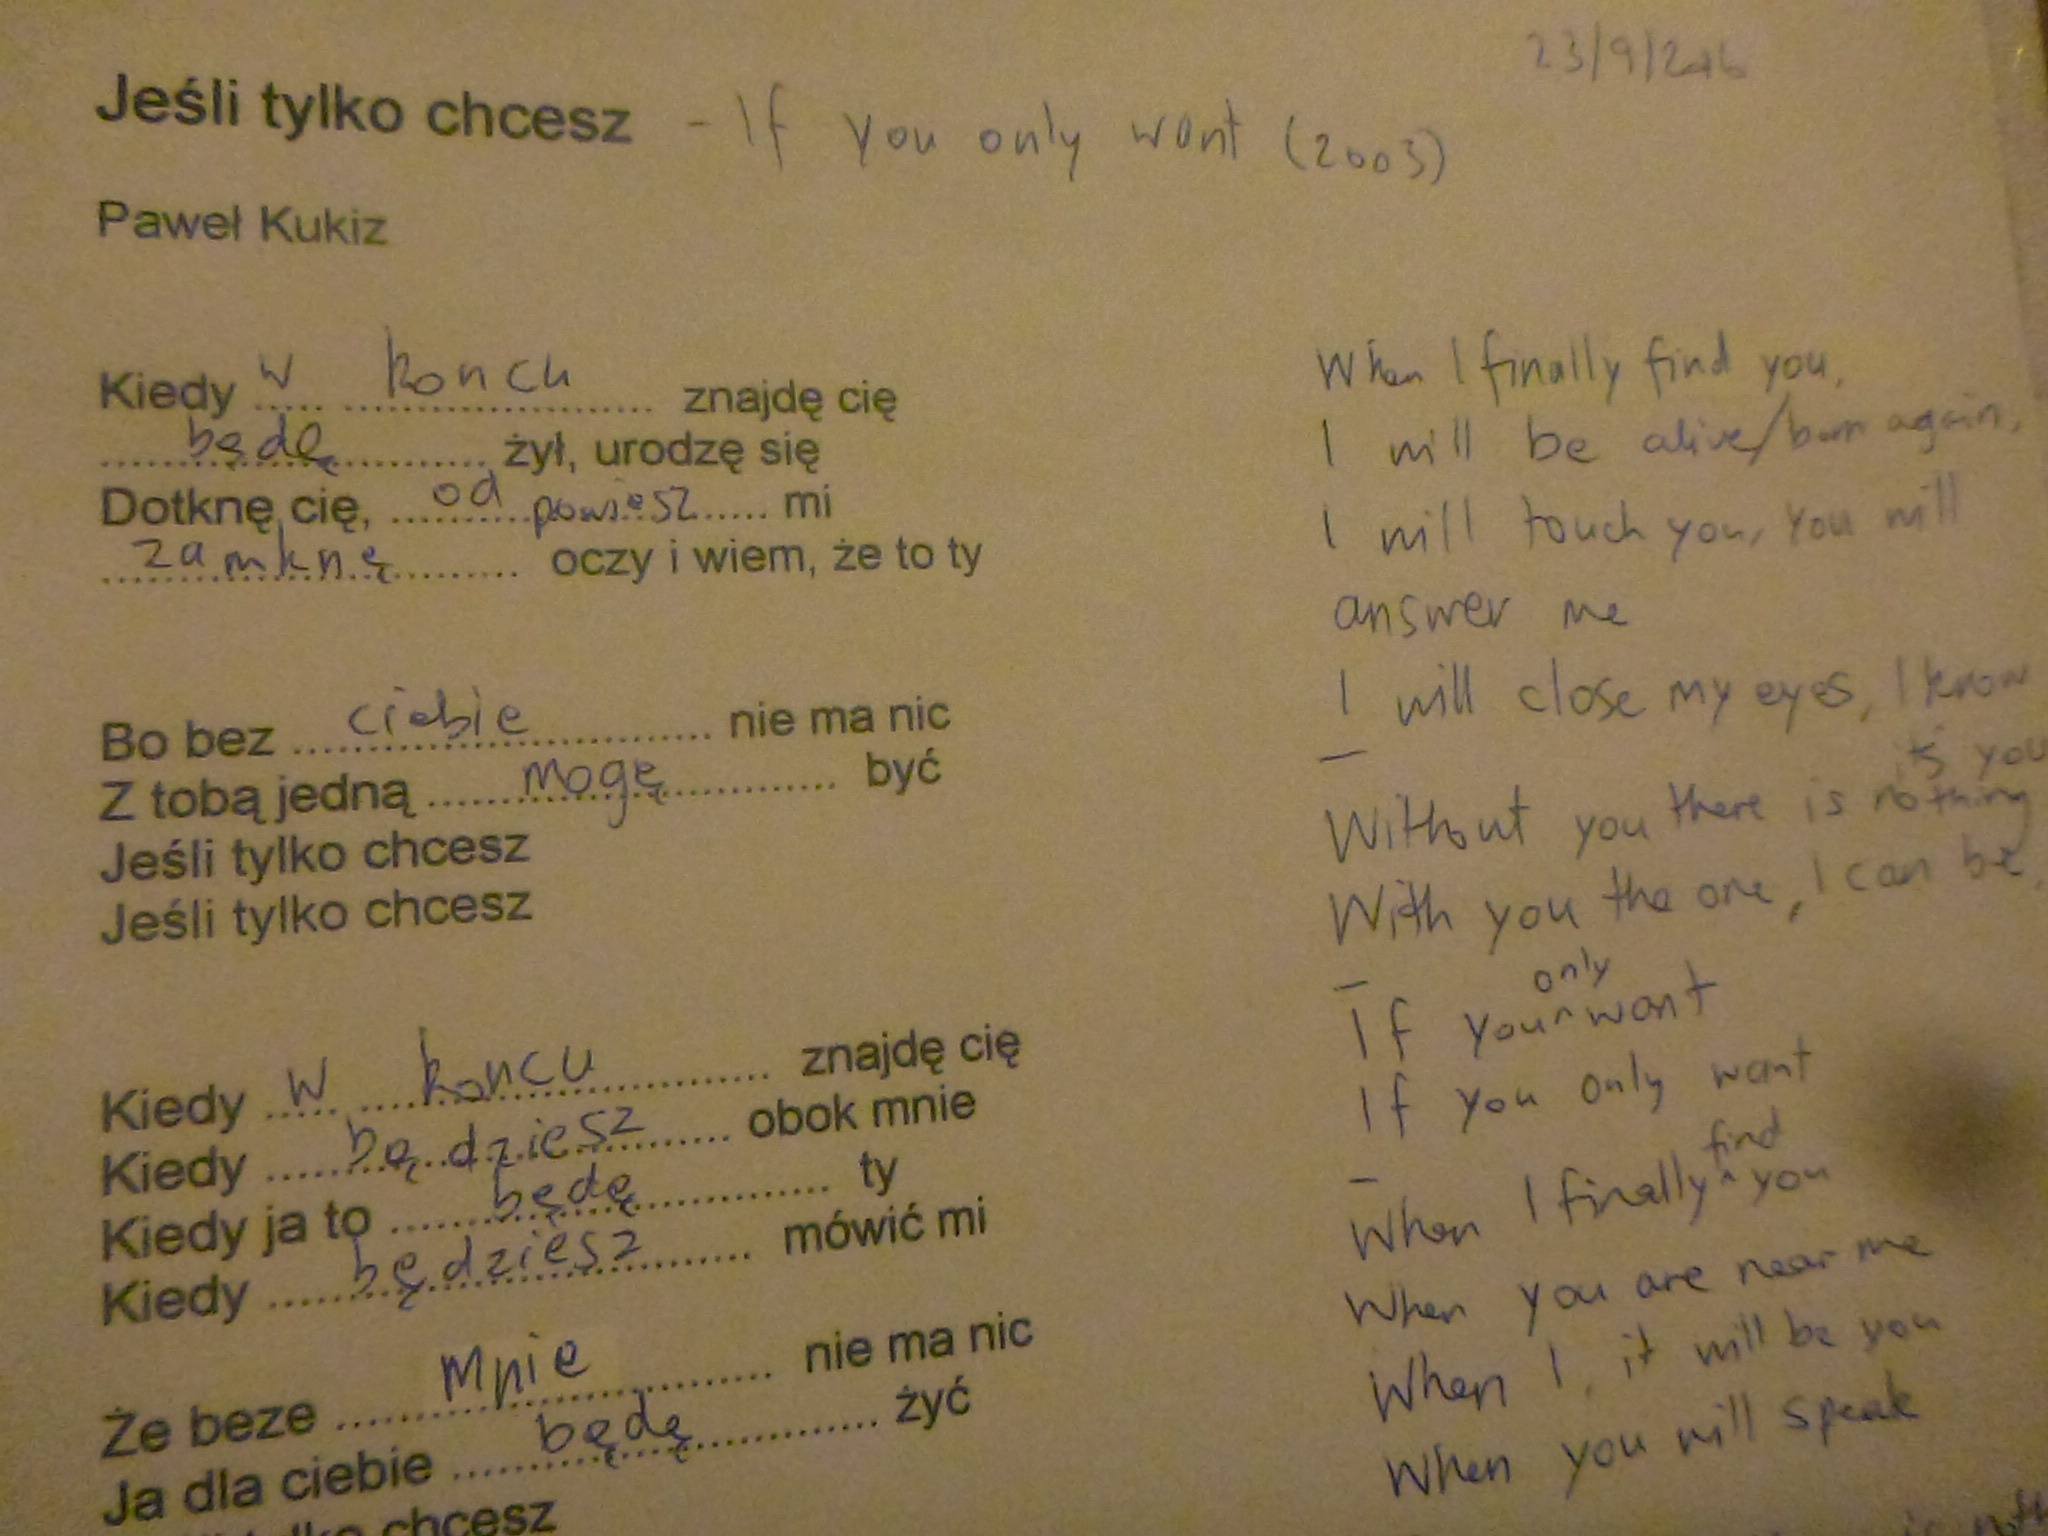 23/9/2016
Jeśli tylko chcesz - If you only want (2003)
Paweł Kukiz
Kiedy w koncu znajdę cię
będę żył, urodzę się
Dotknę cię, od powiesz mi
zamknę oczy i wiem, że to ty
Bo bez ciebie nie ma nic
Z tobą jedną mogę być
Jeśli tylko chcesz
Jeśli tylko chcesz
Kiedy w koncu znajdę cię
Kiedy będziesz obok mnie
Kiedy ja to będę ty
Kiedy będziesz mówić mi
Że beze mnie nie ma nic
Ja dla ciebie będę żyć
tylko chcesz
When I finally find you,
I will be alive/born again,
I will touch you, you will
answer me
I will close my eyes, I know
it's you
Without you there is nothing
With you the one, I can be,
If you only want
If you only want
When I finally find you
When you are near me
When I, it will be you
When you will speak